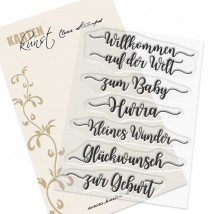 KARTEN
Kunst Clear Stamps
Willkommen
auf der Welt
zum Baby
Hurra
kleines Wunder
Glückwunsch
zur Geburt